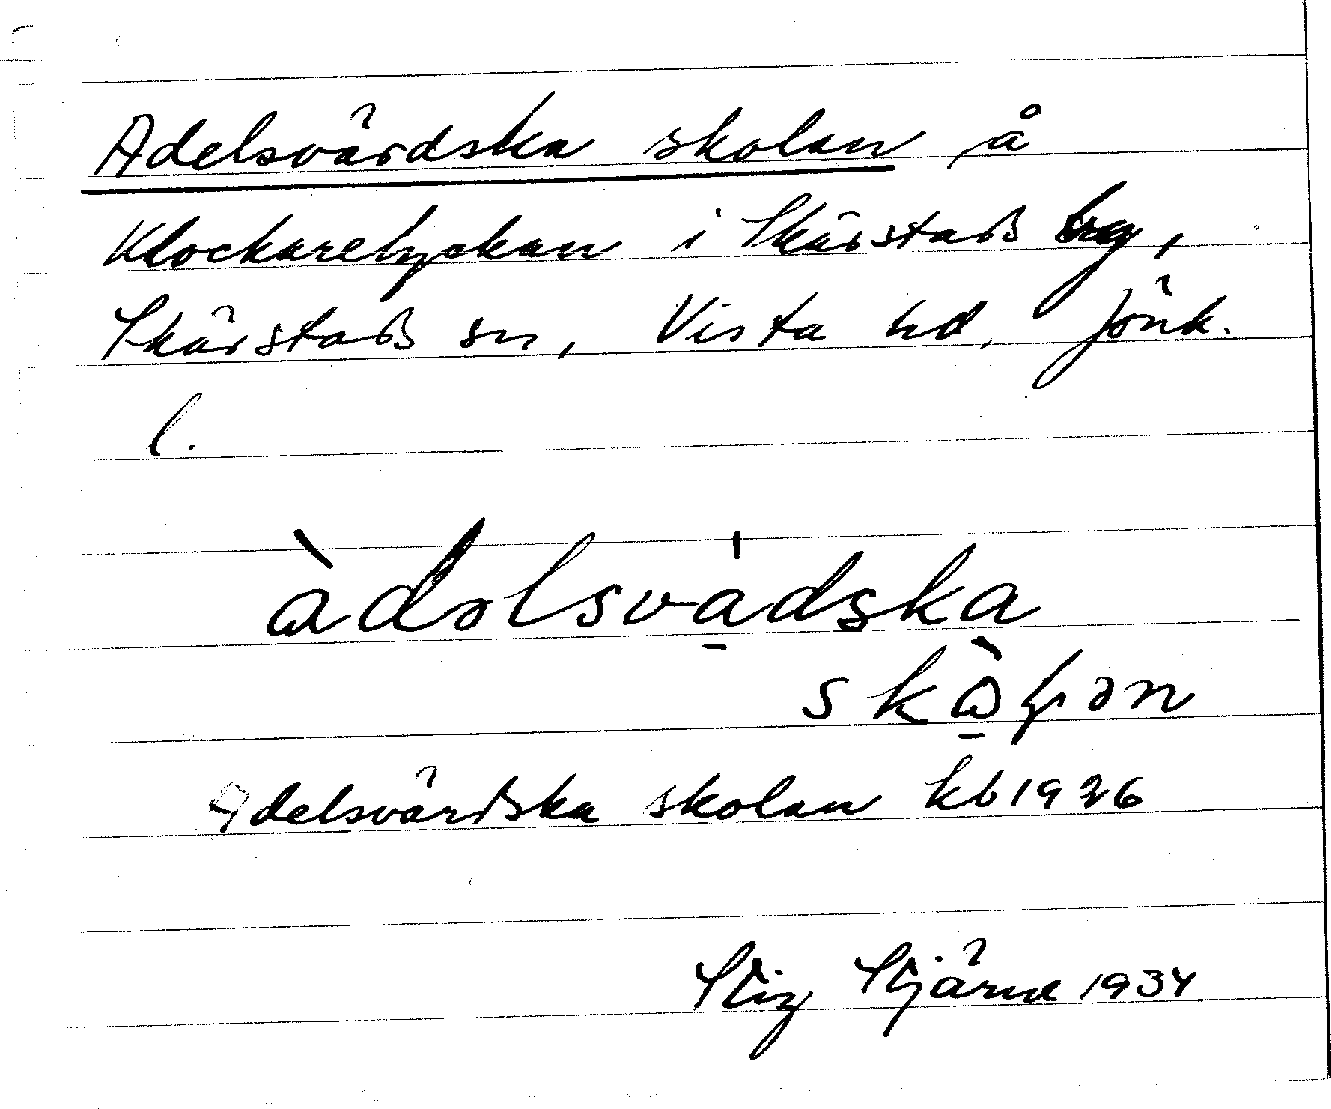 Adelsvärdska skolan å
Klockarelyckan i Skärstads by,
Skärstads sn, Vista hd, Jönk.
l.
àdəlsva̍dska
skὼln
Adelsvärdska skolan kb 1926
Stig Stjärne 1934